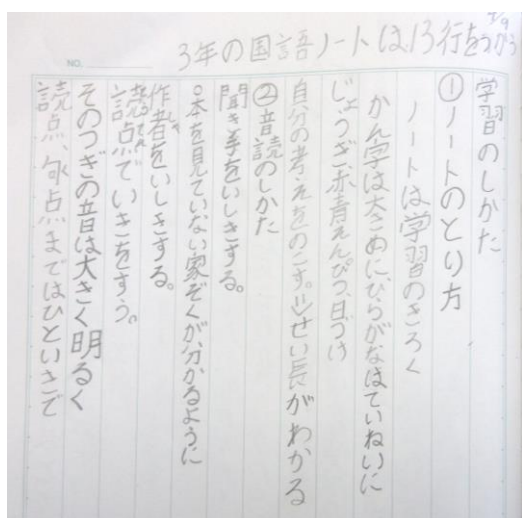 4/9
3年の国語ノートは13行をつかう
NO.
学習のしかた
①ノートのとり方
ノートは学習のきろく
かん字は大きめにひらがなはていねいに
じょうぎ、赤青えんぴつ、日づけ
自分の考えをのこす。⇒せい長がわかる
②音読のしかた
聞き手をいしきする。
○本を見ていない家ぞくが、分かるように
作者をいしきする。
読点でいきをすう。
そのつぎの音は大きく明るく
読点、句点まではひといきで